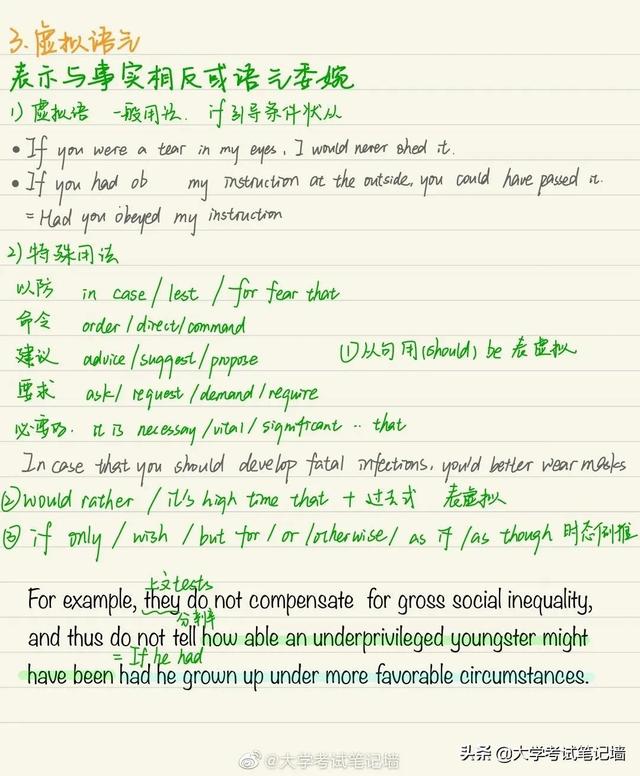 3.虚拟语气
表示与事实相反或语气委婉
1) 虚拟语 一般用法. if引导条件状从
• If you were a tear in my eyes, I would never shed it.
• If you had ob my instruction at the outside, you could have passed it.
= Had you obeyed my instruction
2) 特殊用法
以防 in case / lest / for fear that
命令 order / direct / command
建议 advice / suggest / propose ①从句用(should) be 表虚拟
要求 ask / request / demand / require
必要的. it is necessay / vital / significant ·· that
In case that you should develop fatal infections, you'd better wear masks
② would rather / it's high time that + 过去式 表虚拟
③ if only / wish / but for / or / otherwise / as if / as though 时态倒推
上文tests
For example, they do not compensate for gross social inequality,
分辨
and thus do not tell how able an underprivileged youngster might
= If he had
have been had he grown up under more favorable circumstances.
@大学考试笔记墙
头条 @大学考试笔记墙